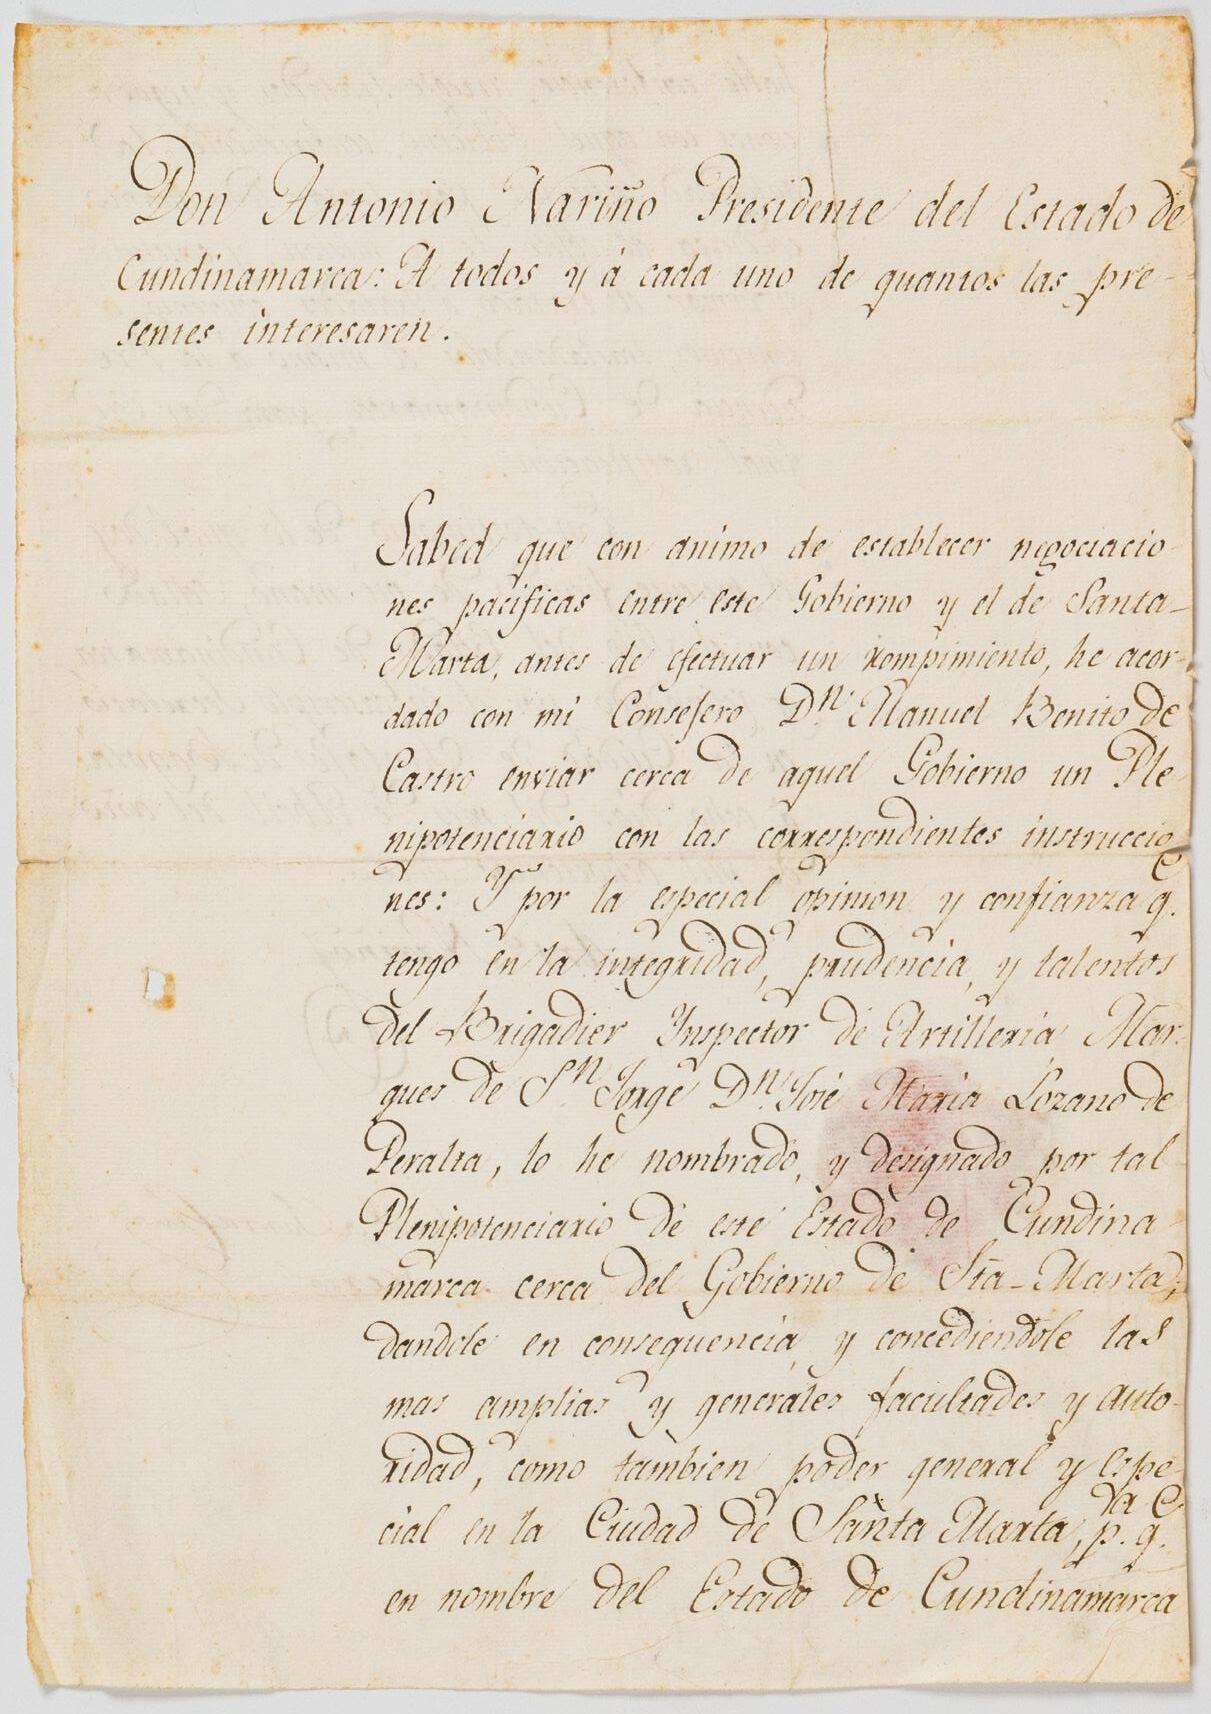 Don Antonio Nariño Presidente del Estado de
Cundinamarca: A todos y à cada uno de quantos las pre-
sentes interesaren.
Sabed que con animo de establecer negociacio-
nes pacificas entre este Gobierno y el de Santa-
Marta, antes de efectuar un rompimiento, he acor-
dado con mi Consejero Dn. Manuel Benito de
Castro enviar cerca de aquel Gobierno un Ple-
nipotenciario con las correspondientes instruccio-
nes: Y por la especial opinion y confianza q.e
tengo en la integridad, prudencia, y talentos
del Brigadier Inspector de Artilleria Mar-
ques de Sn. Jorge Dn. José Maria Lozano de
Peralta, lo he nombrado, y designado por tal
Plenipotenciario de este Estado de Cundina-
marca cerca del Gobierno de Sta-Marta;
dandole en consequencia, y concediendole las
mas amplias y generales facultades y auto-
ridad, como tambien poder general y espe-
cial en la Ciudad de Santa Marta, p.ra q.e
en nombre del Estado de Cundinamarca